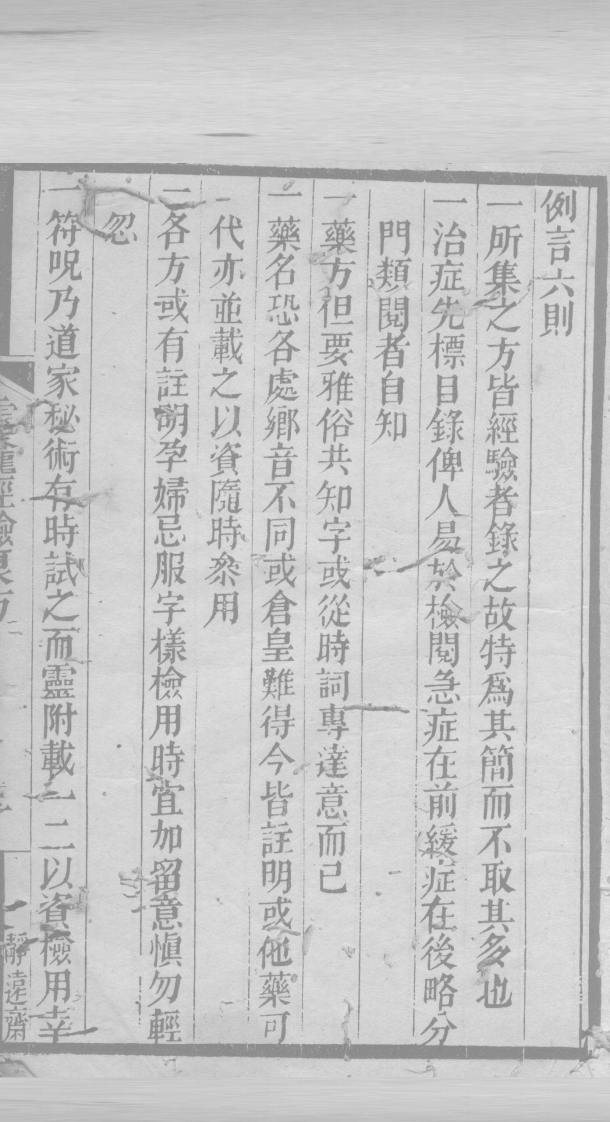 例言六則
一所集之方皆經驗者錄之故特爲其簡而不取其多也
一治症先標目錄俾人易於檢閱急症在前緩症在後略分
門類閱者自知
一藥方但要雅俗共知字或從時詞專達意而已
一藥名恐各處鄉音不同或倉皇難得今皆註明或他藥可
代亦並載之以資隨時叅用
一各方或有註明孕婦忌服字樣檢用時宜加留意愼勿輕
忽
一符呪乃道家秘術有時試之而靈附載一二以資檢用幸
經驗良方
靜遠齋